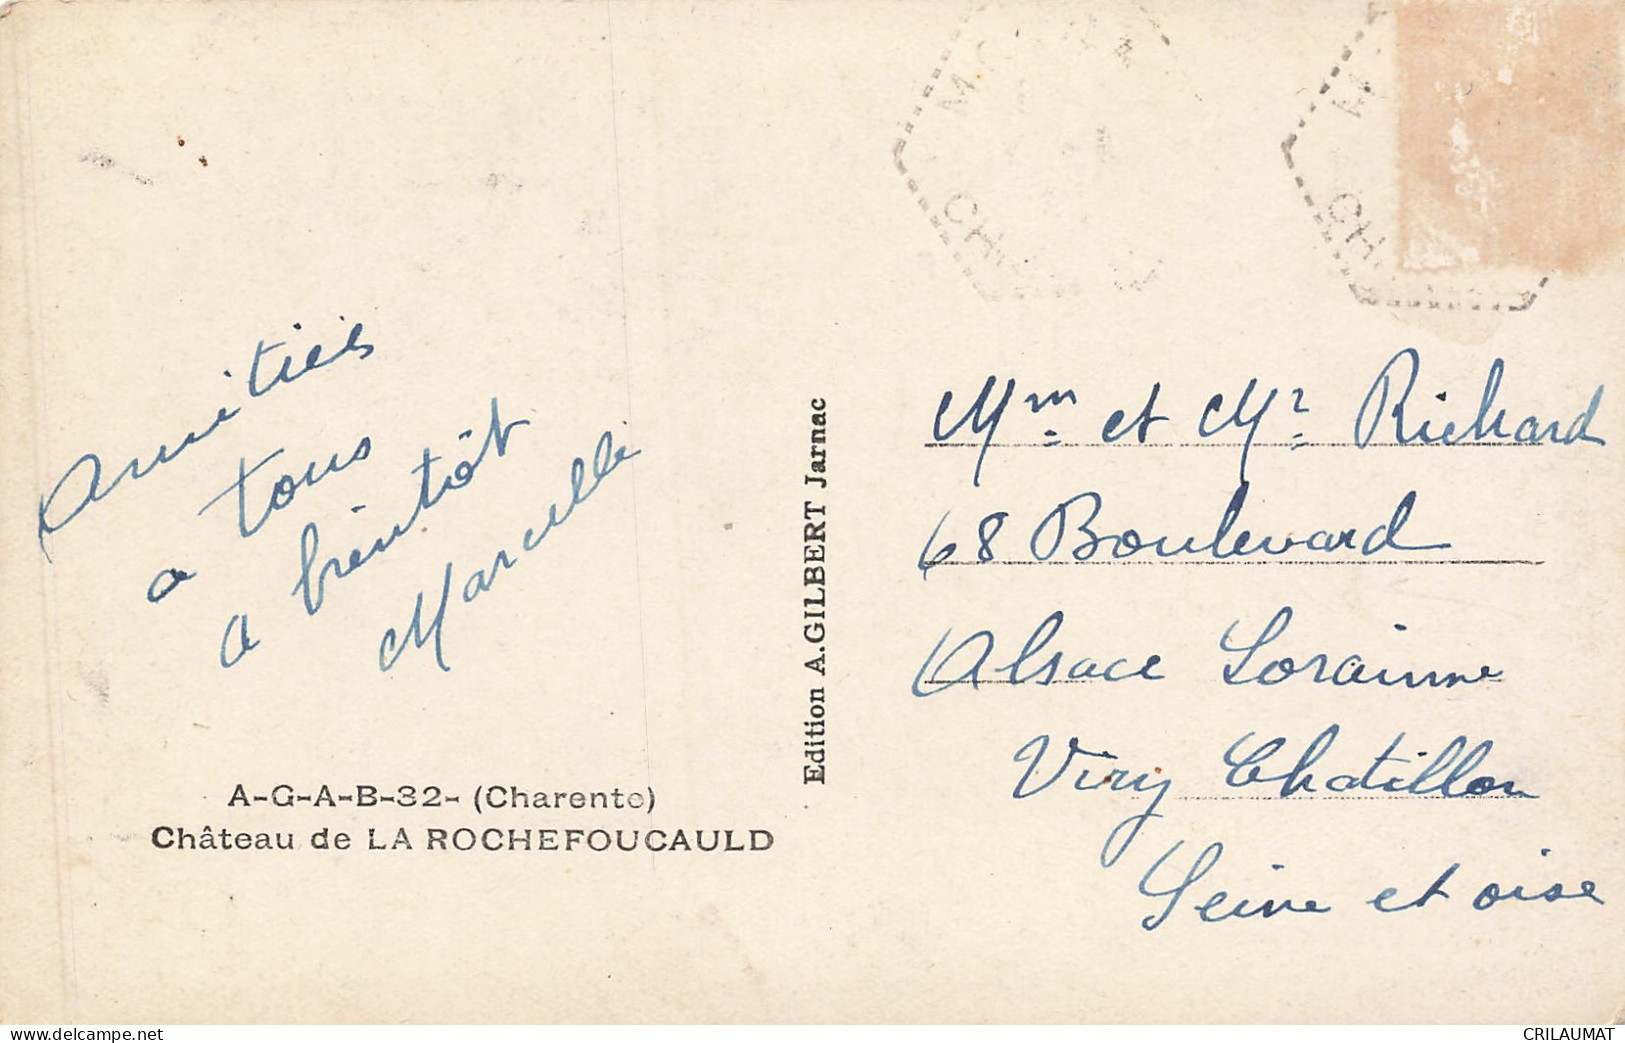 Amitiés
a tous
a bientôt
Marcelle
A-G-A-B-32- (Charente)
Château de LA ROCHEFOUCAULD
Edition A. GILBERT Jarnac
Mm et Mr Richard
68 Boulevard
Alsace Lorainne
Viry Chatillon
Seine et oise
www.delcampe.net
CRILAUMAT